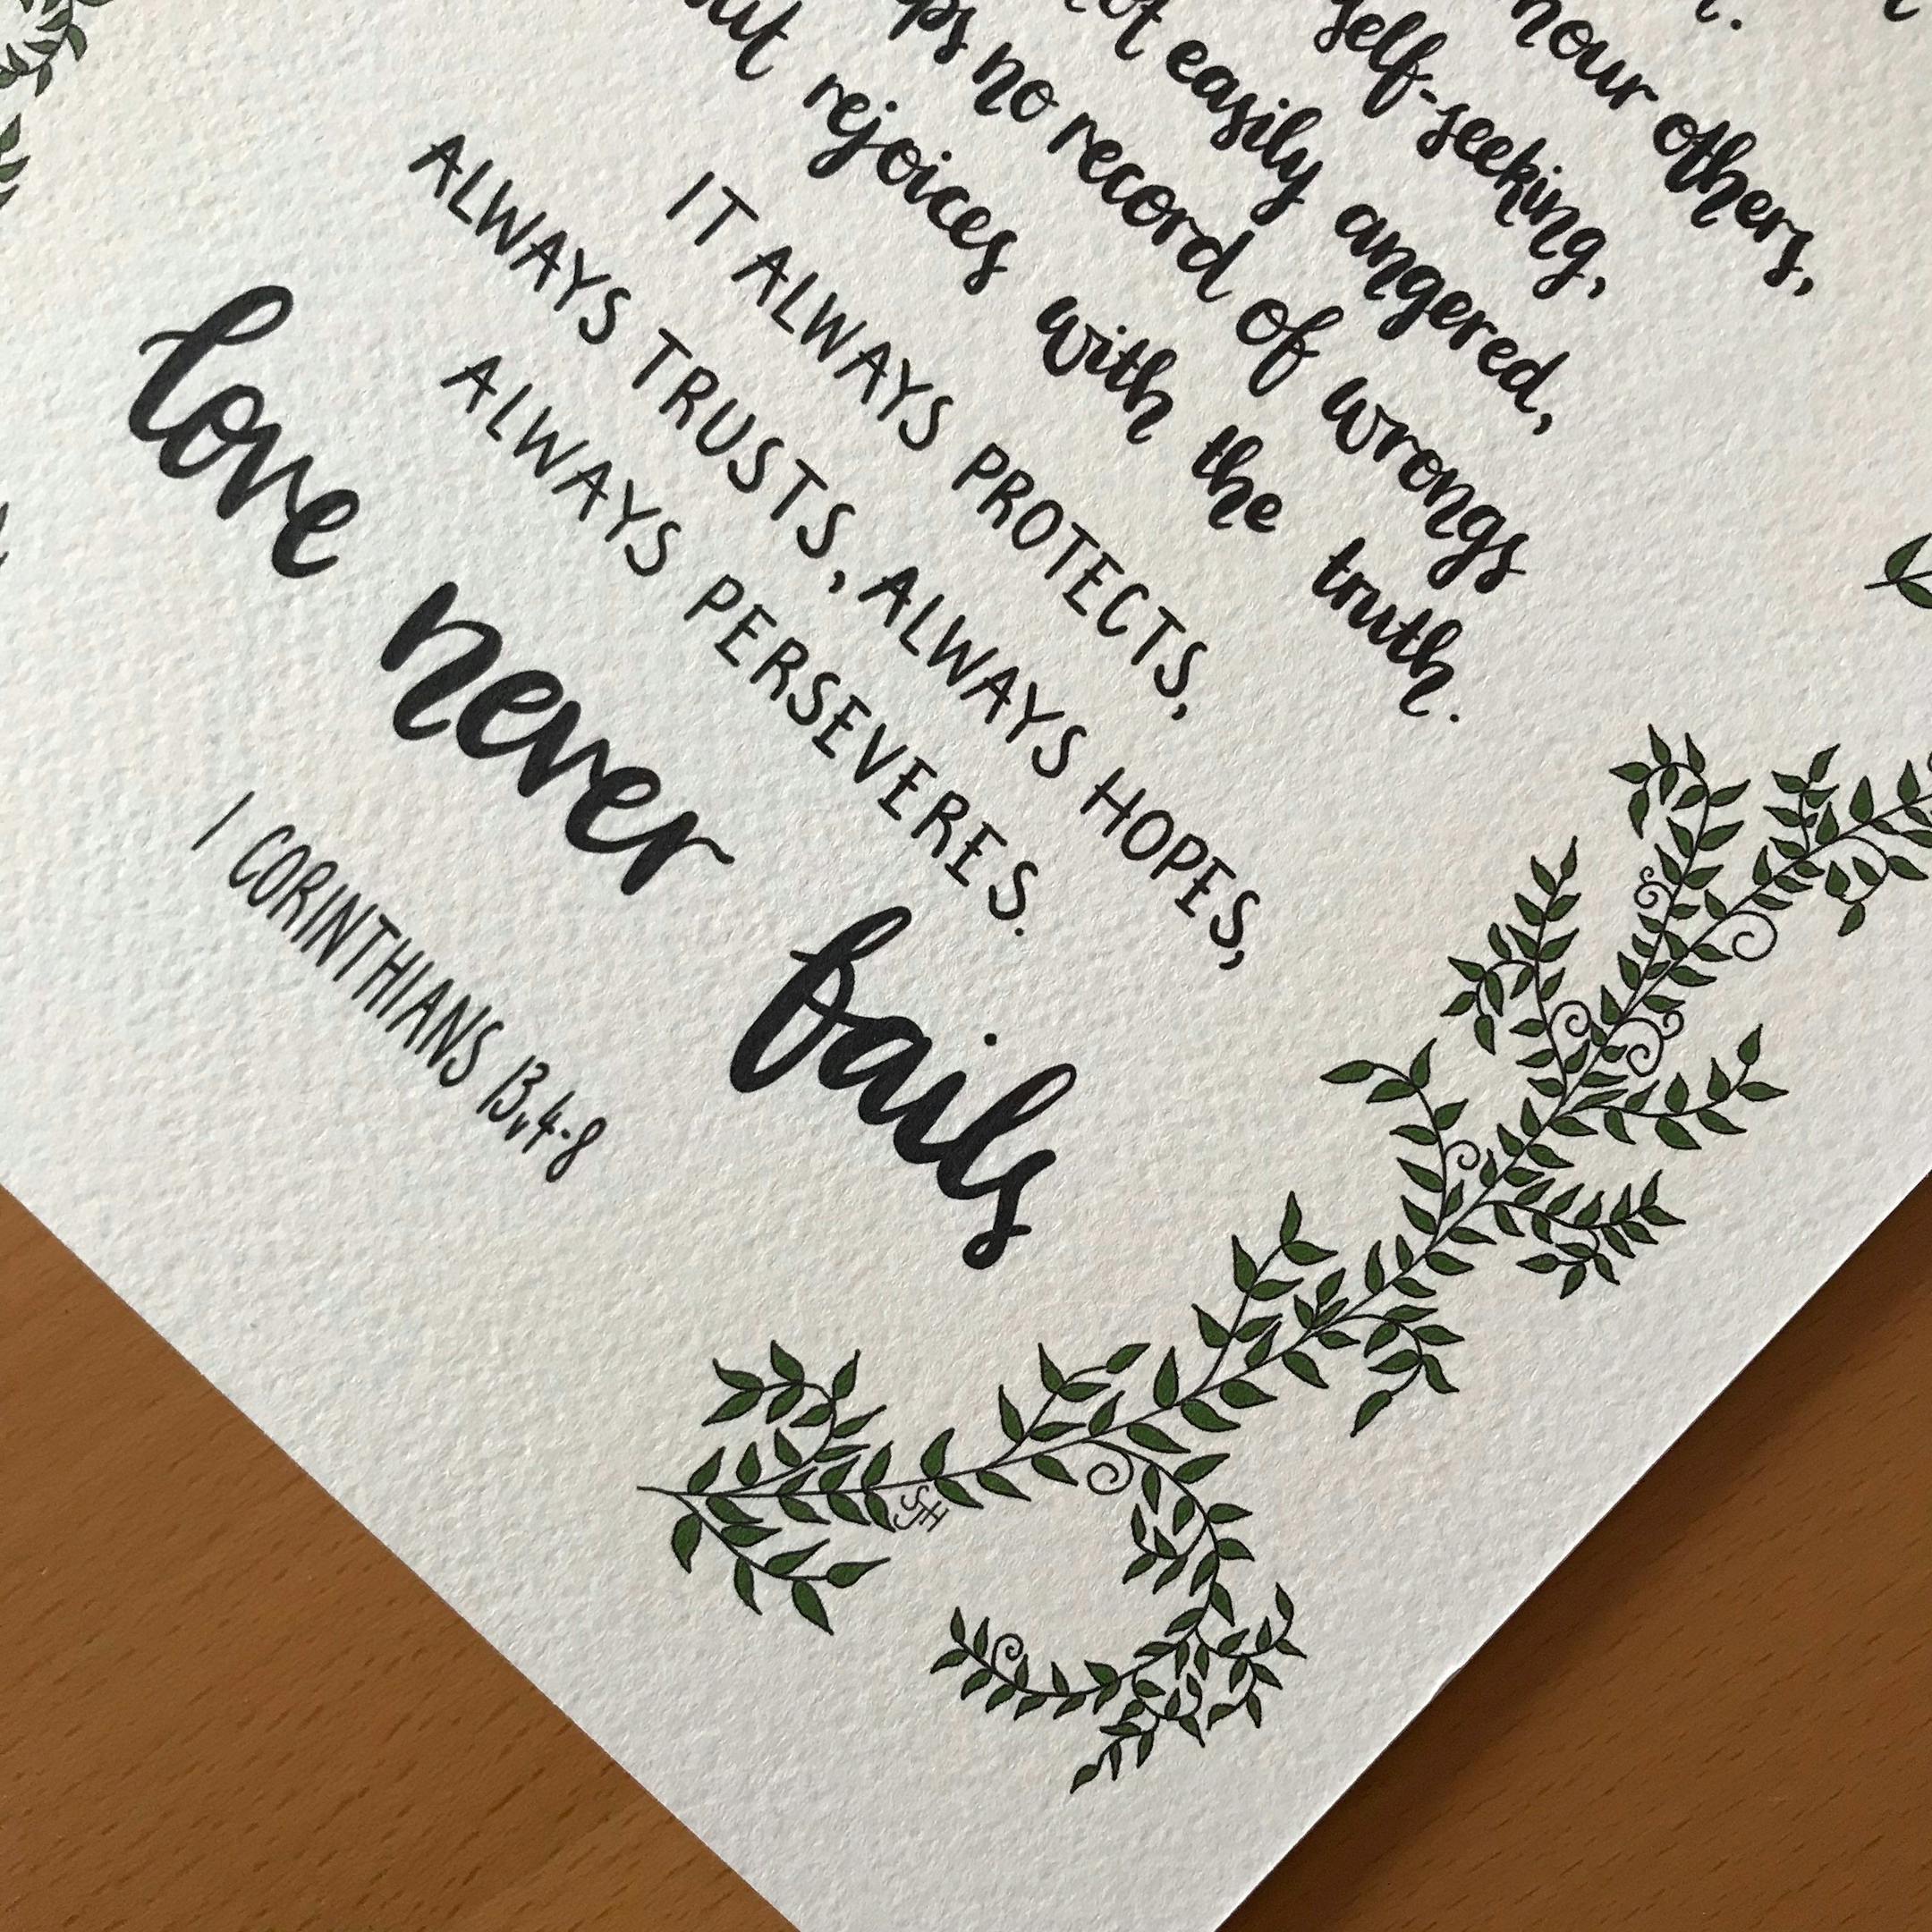 hour others,
self-seeking,
easily angered,
no record of wrongs
rejoices with the truth.
IT ALWAYS PROTECTS,
ALWAYS TRUSTS, ALWAYS HOPES,
ALWAYS PERSEVERES.
love never fails
1 CORINTHIANS 13v4-8
SJH